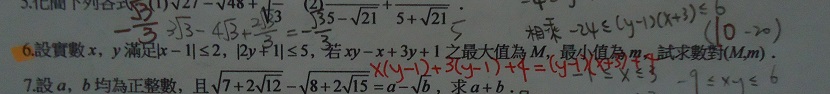 5.化簡下列各式 (1)√27 − √48 + √3 (2) √35 − √21 + 5 + √21
−√3/3 3√3 − 4√3 + 2√3/3 = −√3/3 5
相乘 −24 ≤ (y−1)(x+3) ≤ 6
(10, −20)
6.設實數 x，y 滿足|x − 1| ≤ 2，|2y + 1| ≤ 5，若 xy − x + 3y + 1 之最大值為 M，最小值為 m，試求數對(M,m)．
x(y−1)+3(y−1)+4 = (y−1)(x+3)+4
−1 ≤ x ≤ 3 −9 ≤ xy ≤ 6
7.設 a，b 均為正整數，且√7 + 2√12 − √8 + 2√15 = a − √b，求 a + b．